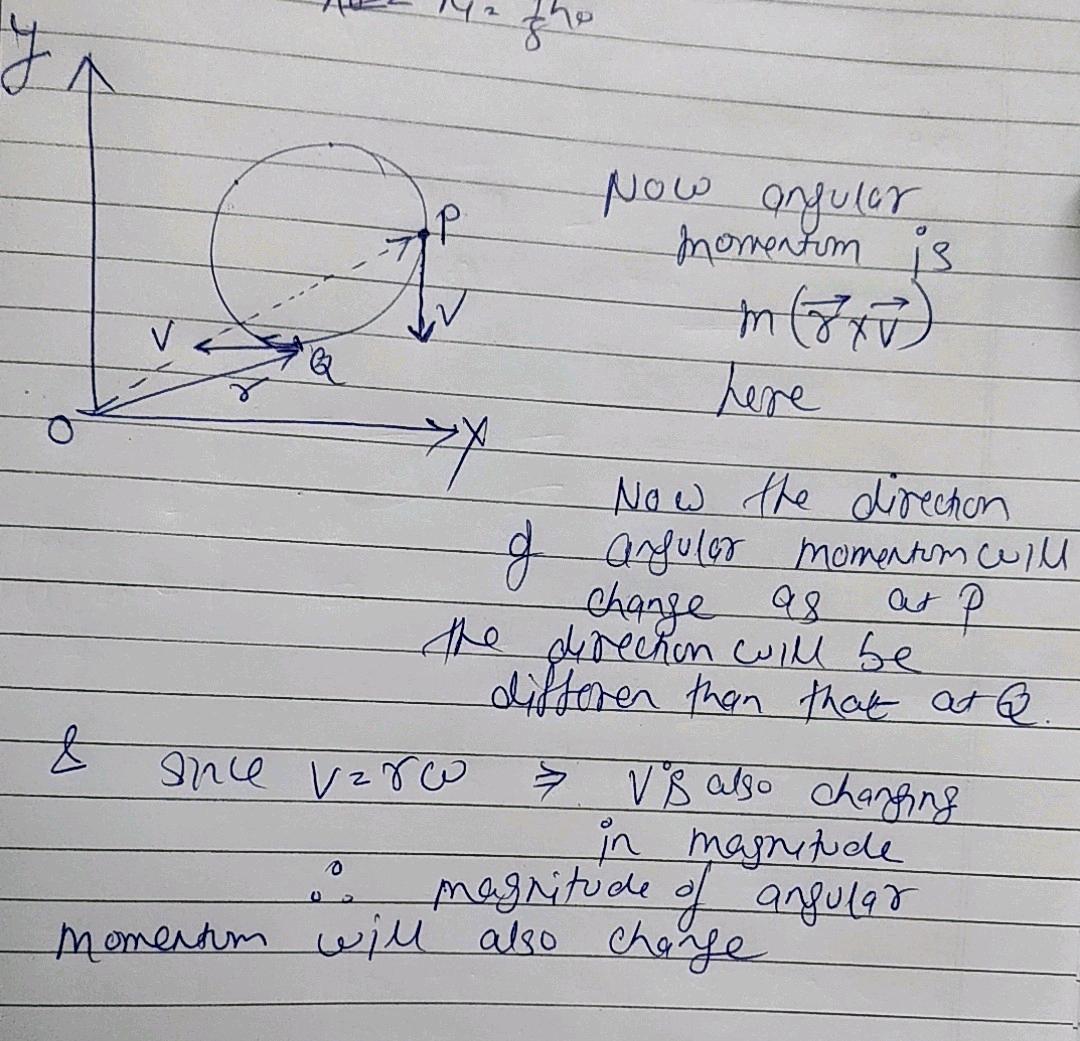 y
P
V
V
Q
r
O
X
Now angular
momentum is
m(r⃗ x v⃗)
here
Now the direction
of angular momentum will
change as at P
the direction will be
differen than that at Q.
& since v = rω ⇒ V is also changing
in magnitude
∴ magnitude of angular
momentum will also change